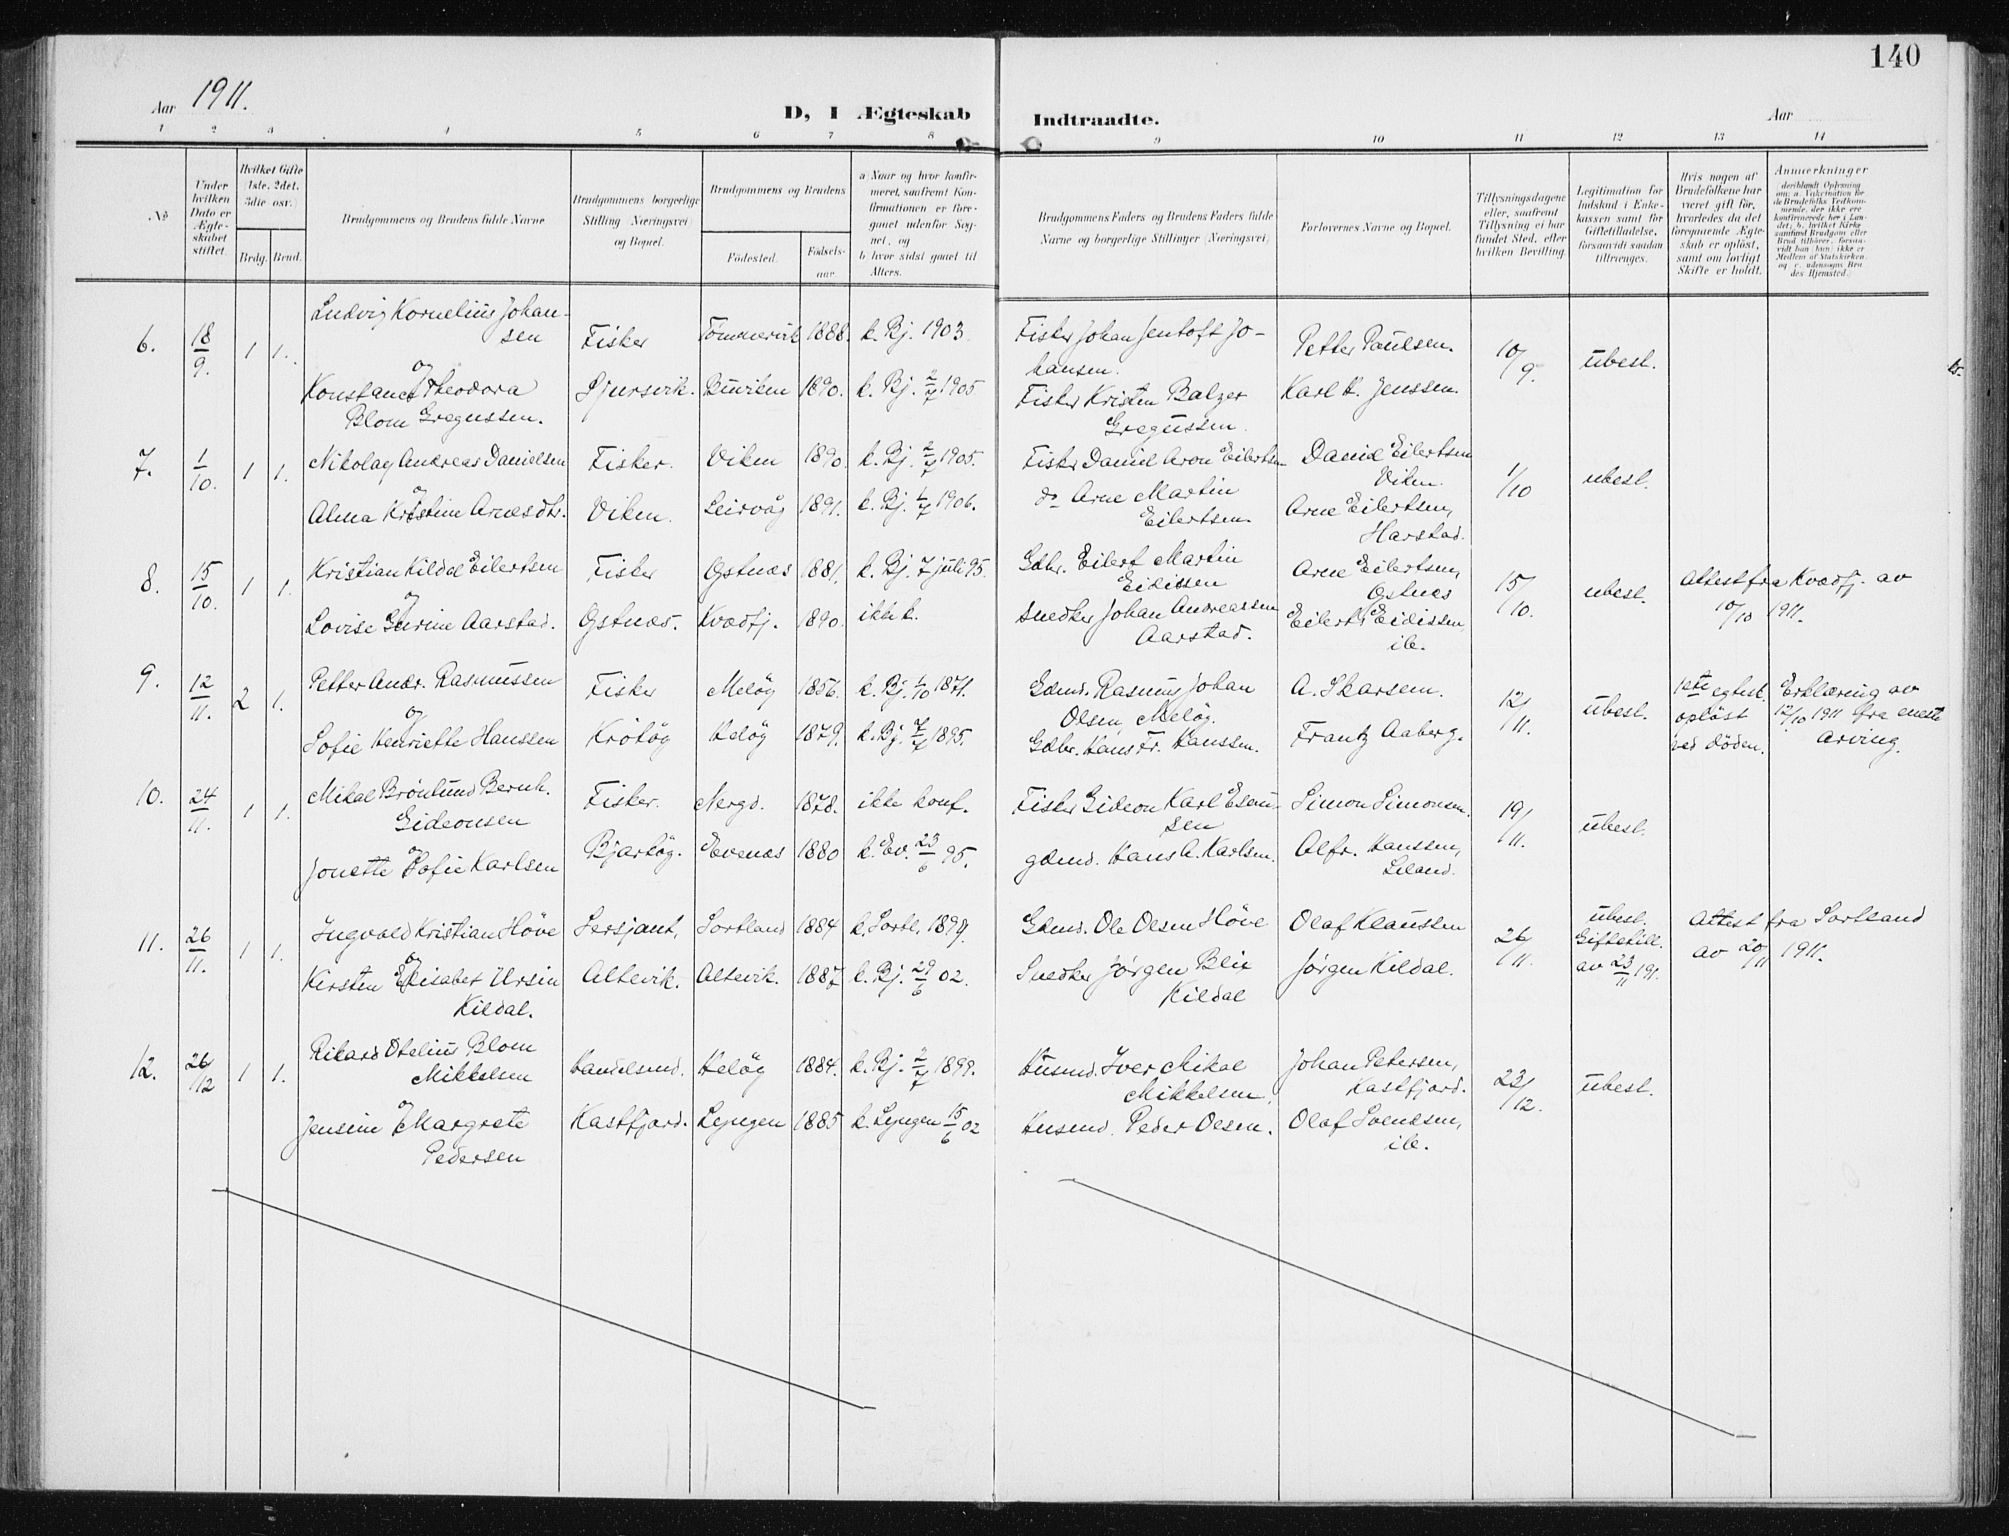 140
Aar 1911.
D, I Ægteskab Indtraadte.
Aar
1 2 3 4 5 6 7 8 9 10 11 12 13 14
No
Under hvilken Dato er Ægteskabet stiftet.
Hvilket Gifte 1ste, 2det, 3die osv.
Brdg. Brud.
Brudgommens og Brudens fulde Navne
Brudgommens borgerlige Stilling (Næringsvei) og Bopæl.
Brudgommens og Brudens
Fødested.
Fødselsaar.
a Naar og hvor konfirmeret, saafremt Konfirmationen er foregaaet udenfor Sognet, og
b hvor sidst gaaet til Alters.
Brudgommens Faders og Brudens Faders fulde Navne og borgerlige Stillinger (Næringsvei)
Forlovernes Navne og Bopæl.
Tillysningsdagene eller, saafremt Tillysning ei har fundet Sted, efter hvilken Bevilling.
Legitimation for Indskud i Enkekassen samt for Giftetilladelse, forsaavidt saadan tiltrænges.
Hvis nogen af Brudefolkene har været gift før, hvorledes da det foregaaende Ægteskab er opløst, samt om lovligt Skifte er holdt.
Anmerkninger
6. 18/9. 1 1. Ludvig Kornelius Johansen Fisker Tømmervik 1888. k. Bj. 1903. Fisker Johan Jentoft Johansen. Petter Paulsen. 10/9. ubest.
og
Konstance Theodora Blom Gregussen. Djursvik. Burilen 1890. k. Bj. 2/7 1905 Fisker Kristen Balzer Gregussen. Karl K. Jenssen.
7. 1/10. 1 1. Nikolay Andreas Danielsen Fisker. Viken 1890. k. Bj. 2/7 1905. Fisker Daniel Aron Eilertsen Daniel Eilertsen Viken. 1/10 ubest.
og
Alma Kristine Arnesdtr. Viken. Leirvåg 1891. k. Bj. 1/7 1906. do Arne Martin Eilertsen. Arne Eilertsen, Harstad.
8. 15/10. 1 1. Kristian Kildal Eilertsen Fisker Østnes 1881. k. Bj. 7 juli 95. Gdbr. Eilert Martin Eidissen Arne Eilertsen, Østnes 15/10. ubest. Attest fra Kvædfj. av 10/10 1911.
og
Lovise Gurine Aarstad. Østnes. Kvædfj. 1890. ikke k. Snedker Johan Andreassen Aarstad. Eilert Eidissen, ib.
9. 12/11. 2 1. Petter Andr. Rasmussen Fisker Meløy 1856. k. Bj. 1/10 1871. Gdmd. Rasmus Johan Olsen, Meløy. A. Skarsem. 12/11. ubest. 1ste egtesk. opløst ved døden. Erklæring av 12/10 1911 fra eneste arving.
og
Sofie Henriette Hanssen Krøtøy Heløy 1879. k. Bj. 7/7 1895. Gdbr. Hans Fr. Hanssen. Frantz Aaberg.
10. 24/11. 1 1. Mikal Brönlund Bernh. Gideonsen Fisker. Nergd. 1878. ikke konf. Fisker Gideon Karl Esaussen Simon Simonsen. 19/11. ubest.
og
Jonette Sofie Karlsen Bjarkøy. Evenes 1880 k. Ev. 23/6 95. gdmd. Hans A. Karlsen. Alfr. Hanssen, Leland.
11. 26/11. 1 1. Ingvald Kristian Höve Sersjant, Sortland 1884 k. Sortl. 1899. Gdmd. Ole Olsen Höve Olaf Klaussen 26/11. ubest. Giftetill. av 23/11 1911. Attest fra Sortland av 20/11 1911.
og
Kirsten Elisabet Ursin Kildal. Altevik. Altevik. 1887 k. Bj. 29/6 02. Snedker Jørgen Blix Kildal Jørgen Kildal.
12. 26/12 1 1. Rikard Otelius Blom Mikkelsen Handelsmd. Heløy 1884. k. Bj. 2/7 1899. Husmd. Iver Mikal Mikkelsen. Johan Petersen, Kastfjord. 23/12. ubest.
og
Jensine Margrete Pedersen Kastfjord. Lyngen 1885 k. Lyngen 15/6 02 Husmd. Peder Olsen. Olaf Svendsen, ib.